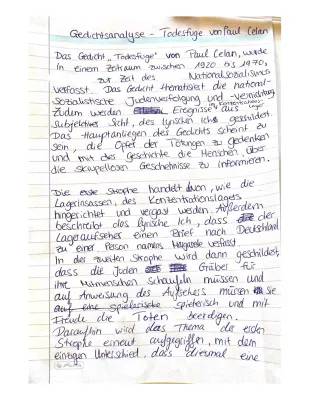 Gedichtsanalyse - Todesfuge von Paul Celan
Das Gedicht „Todesfuge" von Paul Celan, wurde
in einem Zeitraum zwischen 1920 bis 1970,
zur Zeit des Nationalsozialismus
verfasst. Das Gedicht thematisiert die national-
sozialistische Judenverfolgung und -Vernichtung
Zudem werden Ereignisse aus
Subjektiver Sicht, des lyrischen Ichs geschildert.
Das Hauptanliegen des Gedichts scheint zu
sein, die Opfer der Tötungen zu gedenken
und mit der Geschichte die Menschen über
die skrupellosen Geschehnisse zu informieren.
Die erste Strophe handelt davon, wie die
Lagerinsassen, des Konzentrationslagers
hingerichtet und vergast werden. Außerdem
beschreibt das lyrische Ich, dass der
Lageraufseher einen Brief nach Deutschland
zu einer Person namens Margarete verfasst.
In der zweiten Strophe wird dann geschildert,
dass die Juden Gräber für
ihre Mitmenschen schaufeln müssen und
auf Anweisung des Aufsehers müssen sie
spielerisch und mit
Freude die Toten beerdigen.
Daraufhin wird das Thema der ersten
Strophe erneut aufgegriffen, mit dem
einzigen Unterschied, dass diesmal eine